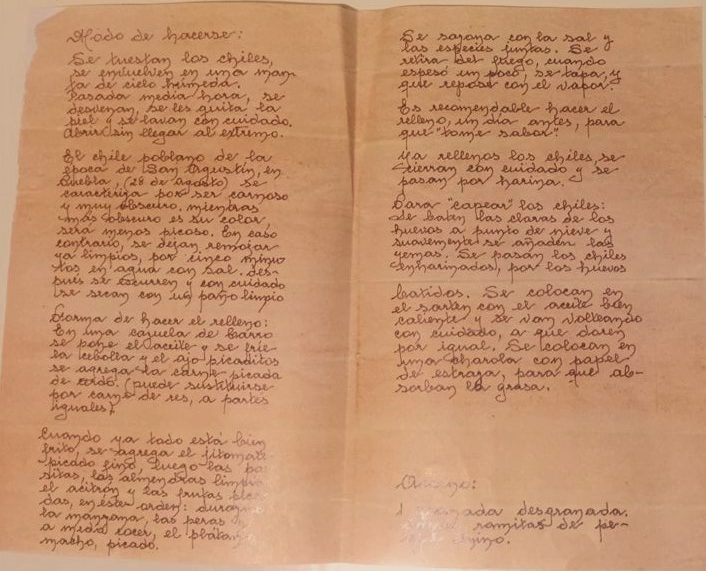 Modo de hacerse:
Se tuestan los chiles,
se envuelven en una man-
ta de cielo húmeda.
Pasada media hora, se
desvenan, se les quita la
piel y se lavan con cuidado.
Abrir sin llegar al extremo.
El chile poblano de la
época de San Agustín, en
Puebla, (28 de agosto) se
caracteriza por ser carnoso
y muy obscuro, mientras
más obscuro es su color,
será menos picoso. En caso
contrario, se dejan remojar
ya limpios, por cinco minu-
tos en agua con sal. des-
pués se escurren y con cuidado
se secan con un paño limpio
Forma de hacer el relleno:
En una cazuela de barro
se pone el aceite y se fríe
la cebolla y el ajo picaditos
se agrega la carne picada
de cerdo. (puede sustituirse
por carne de res, a partes
iguales)
Cuando ya todo está bien
frito, se agrega el jitomate
picado fino, luego las pa
sitas, las almendras limpias
el acitrón y las frutas
das, en este orden: durazno
la manzana, las peras
a medio cocer, el plátano
macho, picado.
Se sazona con la sal y
las especies juntas. Se
retira del fuego, cuando
espesó un poco, se tapa, y
que repose con el vapor.
Es recomendable hacer el
relleno, un día antes, para
que "tome sabor".
Ya rellenos los chiles, se
cierran con cuidado y se
pasan por harina.
Para "capear" los chiles:
Se baten las claras de los
huevos a punto de nieve y
suavemente se añaden las
yemas. Se pasan los chiles
enharinados, por los huevos
batidos. Se colocan en
el sartén con el aceite bien
caliente y se van volteando
con cuidado, a que doren
por igual. Se colocan en
una charola con papel
de estraza, para que ab-
sorban la grasa.
Adorno:
1 granada desgranada.
ramitas de pe-
rejil chino.